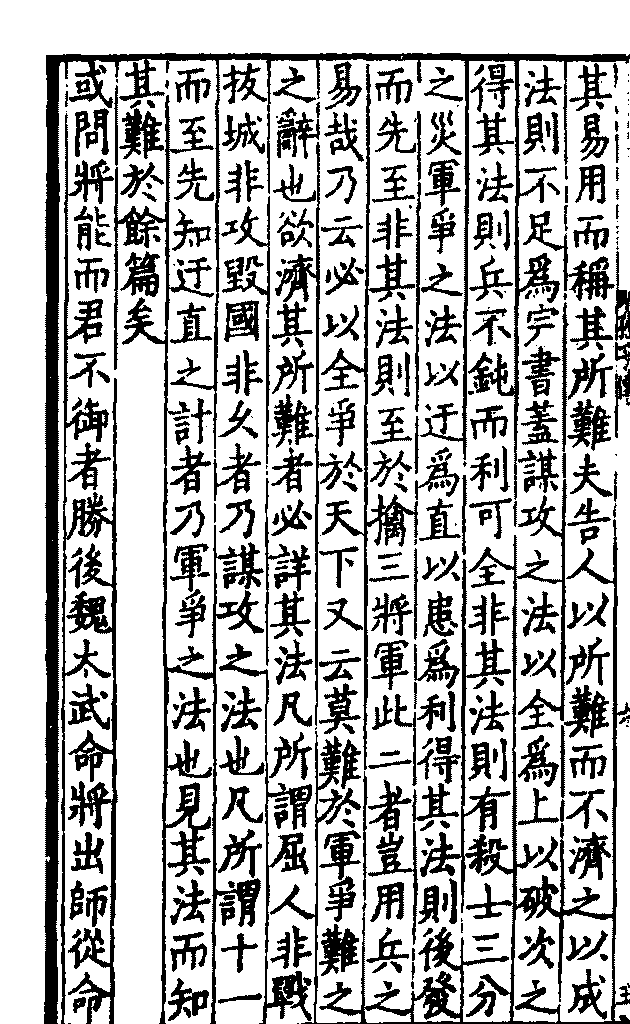 其易用而稱其所難夫告人以所難而不濟之以成
法則不足爲完書蓋謀攻之法以全爲上以破次之
得其法則兵不鈍而利可全非其法則有殺士三分
之災軍爭之法以迂爲直以患爲利得其法則後發
而先至非其法則至於擒三將軍此二者豈用兵之
易哉乃云必以全爭於天下又云莫難於軍爭難之
之辭也欲濟其所難者必詳其法凡所謂屈人非戰
拔城非攻毀國非久者乃謀攻之法也凡所謂十一
而至先知迂直之計者乃軍爭之法也見其法而知
其難於餘篇矣
或問將能而君不御者勝後魏太武命將出師從命